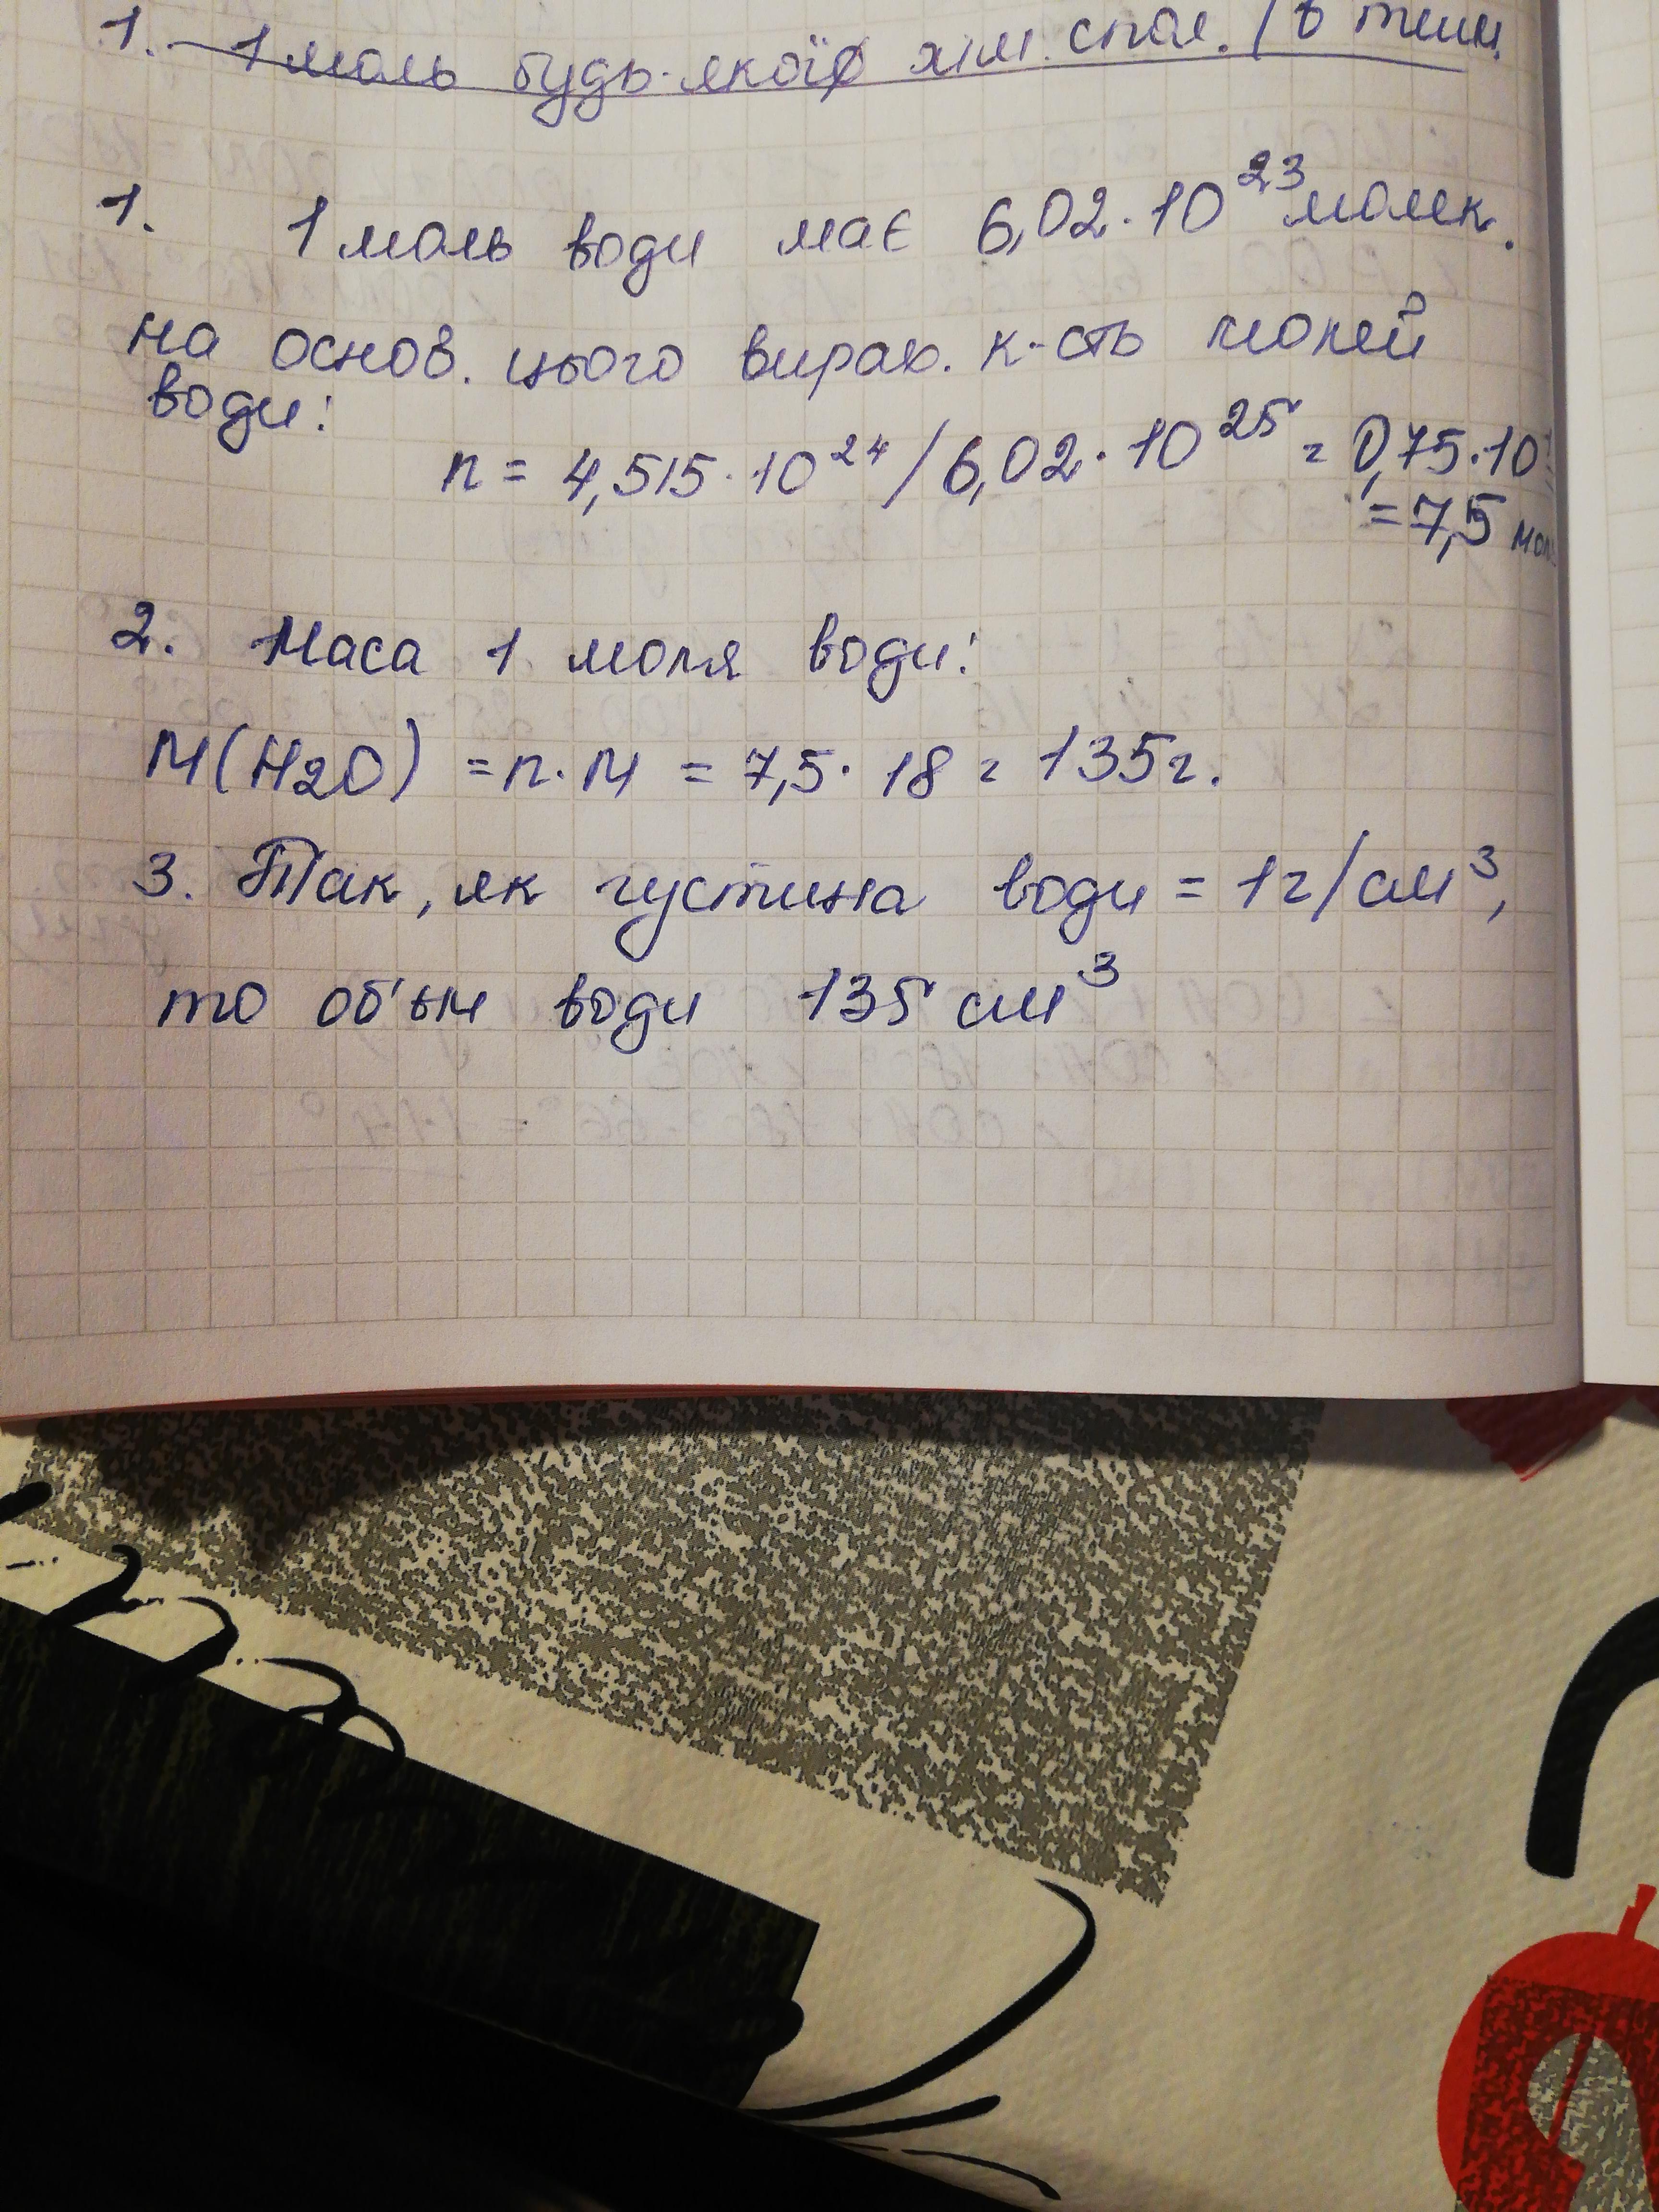 1. 1 моль будь-якої хім. спол. / в т.ч.
1. 1 моль води має 6,02·10²³ молек.
на основ. цього вираж. к-сть молей
води:
n = 4,515·10²⁴/6,02·10²⁵ = 0,75·10
= 7,5 моль
2. Маса 1 моля води:
M(H2O) = n·M = 7,5·18 = 135г.
3. Так, як густина води = 1г/см³,
то об'єм води 135 см³